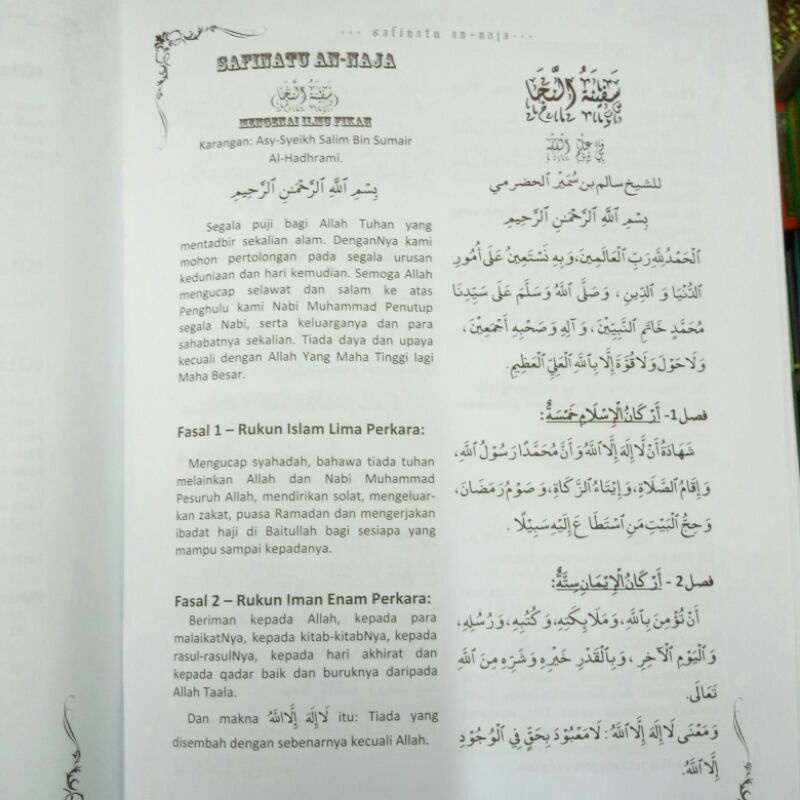 ··· safinatu an-naja···
SAFINATU AN-NAJA
سَفِيْنَةُ النَّجَا
MENGENAI ILMU FIKAH
Karangan: Asy-Syeikh Salim Bin Sumair
Al-Hadhrami.
بِسْمِ اللَّهِ الرَّحْمَٰنِ الرَّحِيمِ
Segala puji bagi Allah Tuhan yang
mentadbir sekalian alam. DenganNya kami
mohon pertolongan pada segala urusan
keduniaan dan hari kemudian. Semoga Allah
mengucap selawat dan salam ke atas
Penghulu kami Nabi Muhammad Penutup
segala Nabi, serta keluarganya dan para
sahabatnya sekalian. Tiada daya dan upaya
kecuali dengan Allah Yang Maha Tinggi lagi
Maha Besar.
Fasal 1 – Rukun Islam Lima Perkara:
Mengucap syahadah, bahawa tiada tuhan
melainkan Allah dan Nabi Muhammad
Pesuruh Allah, mendirikan solat, mengeluar-
kan zakat, puasa Ramadan dan mengerjakan
ibadat haji di Baitullah bagi sesiapa yang
mampu sampai kepadanya.
Fasal 2 – Rukun Iman Enam Perkara:
Beriman kepada Allah, kepada para
malaikatNya, kepada kitab-kitabNya, kepada
rasul-rasulNya, kepada hari akhirat dan
kepada qadar baik dan buruknya daripada
Allah Taala.
Dan makna لَا إِلَهَ إِلَّا اللَّهُ itu: Tiada yang
disembah dengan sebenarnya kecuali Allah.
سَفِيْنَةُ النَّجَا
فِي عِلْمِ الْفِقْهِ
للشيخ سالم بن سُمَيْر الحضرمي
بِسْمِ اللَّهِ الرَّحْمَٰنِ الرَّحِيمِ
اَلْحَمْدُ لِلَّهِ رَبِّ الْعَالَمِينَ، وَبِهِ نَسْتَعِينُ عَلَى أُمُورِ
الدُّنْيَا وَ الدِّينِ ، وَصَلَّى اللَّهُ وَسَلَّمَ عَلَى سَيِّدِنَا
مُحَمَّدٍ خَاتِمِ النَّبِيِّينَ، وَ آلِهِ وَ صَحْبِهِ أَجْمَعِينَ،
وَلَا حَوْلَ وَلَا قُوَّةَ إِلَّا بِاللَّهِ الْعَلِيِّ الْعَظِيمِ.
فصل 1- أَرْكَانُ الْإِسْلَامِ خَمْسَةٌ:
شَهَادَةُ أَنْ لَا إِلَهَ إِلَّا اللَّهُ وَأَنَّ مُحَمَّدًا رَسُوْلُ اللَّهِ،
وَ إِقَامُ الصَّلَاةِ، وَ إِيْتَاءُ الزَّكَاةِ، وَ صَوْمُ رَمَضَانَ،
وَ حِجُّ الْبَيْتِ مَنِ اسْتَطَاعَ إِلَيْهِ سَبِيْلًا .
فصل 2 - أَرْكَانُ الْإِيْمَانِ سِتَّةٌ:
أَنْ تُؤْمِنَ بِاللَّهِ، وَمَلَائِكَتِهِ، وَ كُتُبِهِ، وَرُسُلِهِ،
وَ الْيَوْمِ الْآخِرِ ، وَبِالْقَدَرِ خَيْرِهِ وَ شَرِّهِ مِنَ اللَّهِ
تَعَالَى.
وَ مَعْنَى لَا إِلَهَ إِلَّا اللَّهُ : لَا مَعْبُوْدَ بِحَقٍّ فِي الْوُجُوْدِ
إِلَّا اللَّهُ.